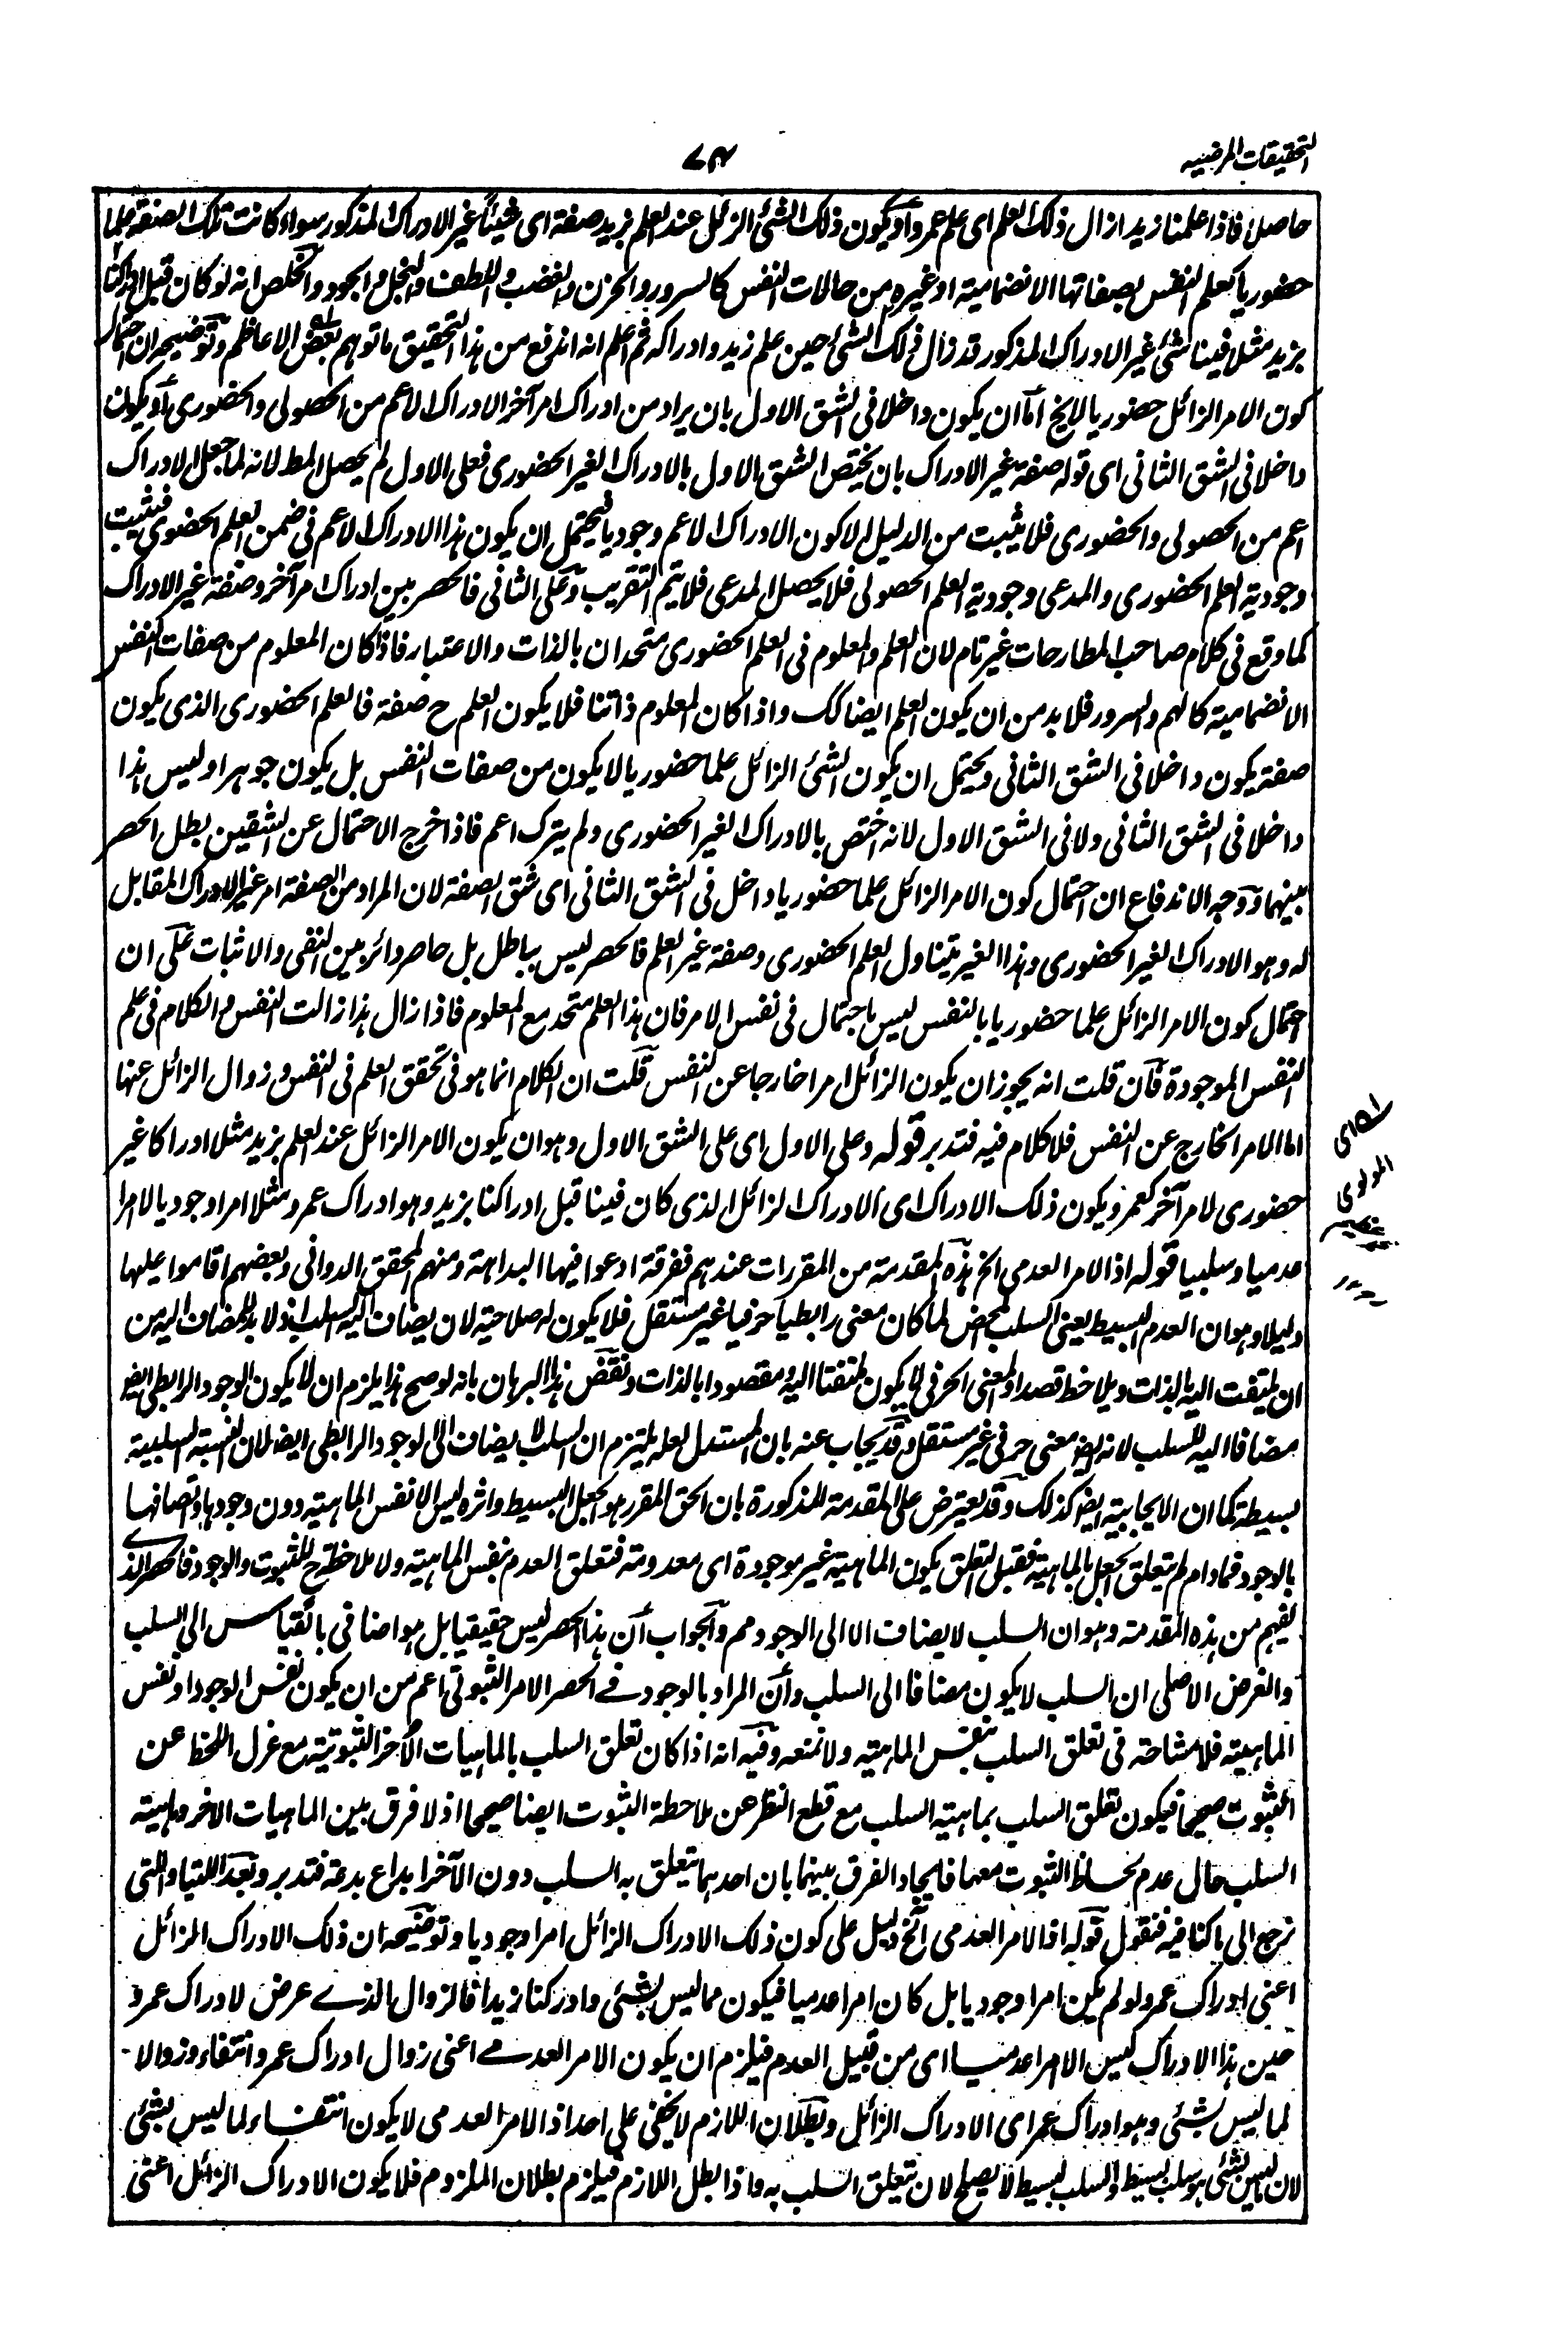 التحقيقات المرضيه
٧٤
حاصلا فاذا علمنا زيدا زال ذلك العلم اى علم عمرو او يكون ذلك الشئ الزائل عند العلم بزيد صفة اى شيئا غير الادراك المذكور سواء كانت تلك الصفة علما
حضوريا كعلم النفس بصفاتها الانضمامية او غيره من حالات النفس كالسرور والحزن والغضب واللطف والبخل والجود والمخلص انه لو كان قبل ادراكنا
بزيد مثلا فينا شئ غير الادراك المذكور قد زال ذلك الشئ حين علم زيد وادراكه ثم اعلم انه اندفع من هذا التحقيق ما توهم بعض الاعاظم وتوضيحه ان احتمال
كون الامر الزائل حضوريا لا يخ اما ان يكون داخلا فى الشق الاول بان يراد من ادراك امر آخر الادراك الاعم من الحصولى والحضورى او يكون
داخلا فى الشق الثانى اى قوله صفة غير الادراك بان يختص الشق الاول بالادراك الغير الحضورى فعلى الاول لم يحصل المط لانه لما جعل الادراك
اعم من الحصولى والحضورى فلا يثبت من الدليل الا كون الادراك الاعم وجوديا فيحتمل ان يكون هذا الادراك الاعم فى ضمن العلم الحضورى فيثبت
وجودية العلم الحضورى والمدعى وجودية العلم الحصولى فلا يحصل المدعى فلا يتم التقريب وعلى الثانى فالحصر بين ادراك امر آخر وصفة غير الادراك
كما وقع فى كلام صاحب المطارحات غير تام لان العلم والمعلوم فى العلم الحضورى متحدان بالذات والاعتبار فاذا كان المعلوم من صفات النفس
الانضمامية كالهم والسرور فلا بد من ان يكون العلم ايضا كك واذا كان المعلوم ذاتنا فلا يكون العلم ح صفة فالعلم الحضورى الذى يكون
صفة يكون داخلا فى الشق الثانى ويحتمل ان يكون الشئ الزائل علما حضوريا لا يكون من صفات النفس بل يكون جوهرا وليس هذا
داخلا فى الشق الثانى ولا فى الشق الاول لانه اختص بالادراك الغير الحضورى ولم يترك اعم فاذا خرج الاحتمال عن الشقين بطل الحصر
بينهما ووجه الاندفاع ان احتمال كون الامر الزائل علما حضوريا داخل فى الشق الثانى اى شق الصفة لان المراد من الصفة امر غير الادراك المقابل
له وهو الادراك الغير الحضورى وهذا الغير يتناول العلم الحضورى وصفة غير العلم فالحصر ليس بباطل بل حاصر دائر بين النفى والاثبات على ان
احتمال كون الامر الزائل علما حضوريا بالنفس ليس باحتمال فى نفس الامر فان هذا العلم متحد مع المعلوم فاذا زال هذا زالت النفس والكلام فى علم
النفس الموجودة فان قلت انه يجوز ان يكون الزائل امرا خارجا عن النفس قلت ان الكلام انما هو فى تحقق العلم فى النفس وزوال الزائل عنها
اما الامر الخارج عن النفس فلا كلام فيه فتدبر قوله وعلى الاول اى على الشق الاول وهو ان يكون الامر الزائل عند العلم بزيد مثلا ادراكا غير
حضورى لامر آخر كعمرو يكون ذلك الادراك اى الادراك الزائل الذى كان فينا قبل ادراكنا بزيد وهو ادراك عمرو مثلا امرا وجوديا لا امرا
عدميا وسلبيا قوله اذ الامر العدمى الخ هذه المقدمة من المقررات عندهم ففرقة ادعوا فيها البداهة ومنهم المحقق الدوانى وبعضهم اقاموا عليها
دليلا وهو ان العدم البسيط يعنى السلب المحض لما كان معنى رابطيا حرفيا غير مستقل فلا يكون له صلاحية لان يضاف اليه السلب اذ لا بد للمضاف اليه من
ان يلتفت اليه بالذات ويلاحظ قصدا والمعنى الحرفى لا يكون ملتفتا اليه ومقصودا بالذات ونقض هذا البرهان بانه لو صح هذا يلزم ان لا يكون الوجود الرابطى ايضا
مضافا اليه للسلب لانه ايضا معنى حرفى غير مستقل وقد يجاب عنه بان المستدل لعله يلتزم ان السلب لا يضاف الى الوجود الرابطى ايضا لان النسبة السلبية
بسيطة كما ان الايجابية ايضا كذلك وقد يعترض على المقدمة المذكورة بان الحق المقرر هو الجعل البسيط واثره ليس الا نفس الماهية دون وجودها واتصافها
بالوجود فما دام لم يتعلق الجعل بالماهية فقبل التعلق يكون الماهية غير موجودة اى معدومة فتعلق العدم بنفس الماهية ولا ملاحظة ح للثبوت والوجود فالحصر الذى
يفهم من هذه المقدمة وهو ان السلب لا يضاف الا الى الوجود مم والجواب ان هذا الحصر ليس حقيقيا بل هو اضافى بالقياس الى السلب
والغرض الاصلى ان السلب لا يكون مضافا الى السلب وان المراد بالوجود فى الحصر الامر الثبوتى اعم من ان يكون نفس الوجود او نفس
الماهية فلا مشاحة فى تعلق السلب بنفس الماهية ولا نمنعه وفيه انه اذا كان تعلق السلب بالماهيات الأخر الثبوتية مع عزل اللحظ عن
الثبوت صحيحا فيكون تعلق السلب بماهية السلب مع قطع النظر عن ملاحظة الثبوت ايضا صحيحا اذ لا فرق بين الماهيات الاخر وماهية
السلب حال عدم لحاظ الثبوت معها فايجاد الفرق بينهما بان احدهما يتعلق به السلب دون الآخر ابداع بدعة فتدبر وبعد اللتيا والتى
نرجع الى ما كنا فيه فنقول قوله اذ الامر العدمى الخ دليل على كون ذلك الادراك الزائل امرا وجوديا وتوضيحه ان ذلك الادراك الزائل
اعنى ادراك عمرو لو لم يكن امرا وجوديا بل كان امرا عدميا فيكون مما ليس بشئ وادركنا زيدا فالزوال الذى عرض لادراك عمرو
حين هذا الادراك ليس الا امرا عدميا اى من قبيل العدم فيلزم ان يكون الامر العدمى اعنى زوال ادراك عمرو انتفاء وزوالا
لما ليس بشئ وهو ادراك عمرو اى الادراك الزائل وبطلان اللازم لا يخفى على احد اذ الامر العدمى لا يكون انتفاء لما ليس بشئ
لان ما ليس بشئ هو سلب بسيط والسلب البسيط لا يصلح لان يتعلق السلب به واذا بطل اللازم فيلزم بطلان الملزوم فلا يكون الادراك الزائل اعنى
المولوى